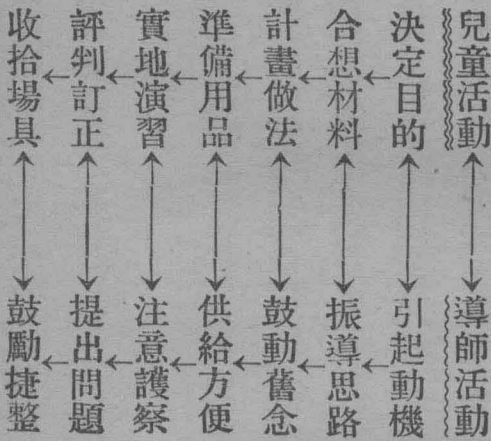 兒童活動
導師活動
決定目的
引起動機
合想材料
振導思路
計畫做法
鼓動舊念
準備用品
供給方便
實地演習
注意護察
評判訂正
提出問題
收拾場具
鼓勵捷整